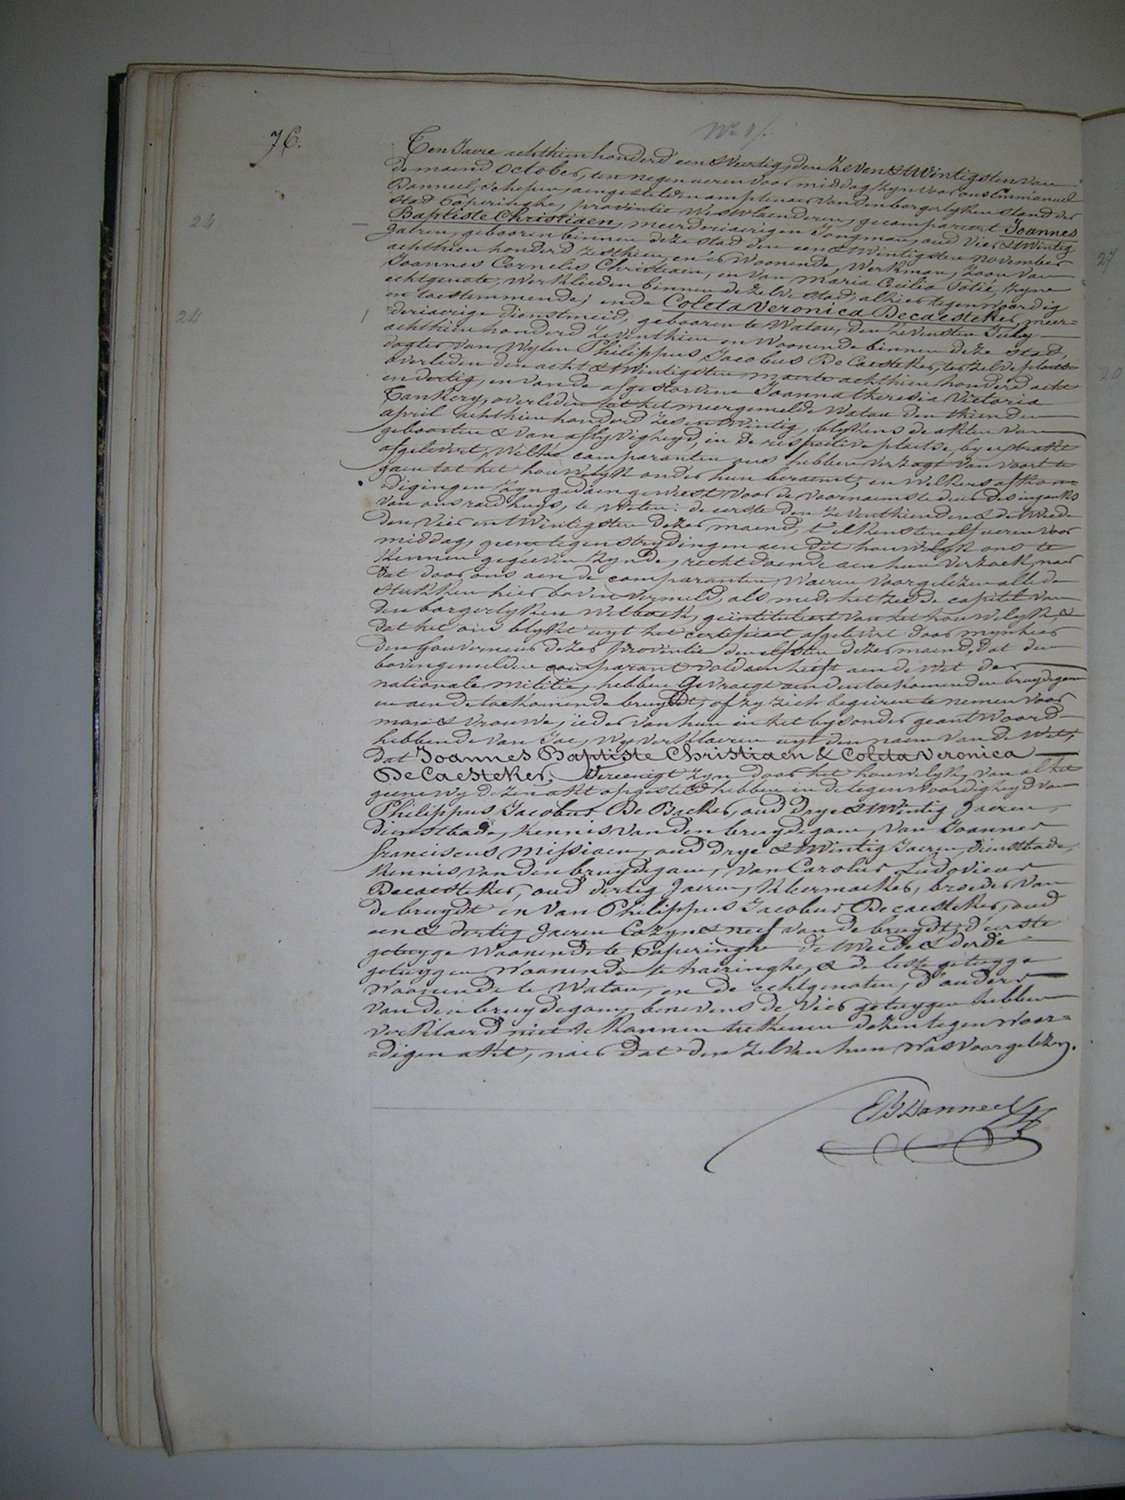 76.
Ten Jaere achthien honderd een & veertig, den zeven & twintigsten van
de maend October, ten negen ueren voor middag zyn voor ons Emmanuel
Banneel, schepen, aengestelden amptenaer van den borgerlyken stand der
stad Poperinghe, provintie Westvlaenderen, gecompareert Joannes
Baptiste Christiaen, meerderjaerigen Jongman, oud vier & twintig
jaeren, gebooren binnen deze stad den een & twintigsten november
achthien honderd zesthien, en er woonende, werkman, zoon van
Joannes Cornelis Christiaen, en van Maria Cecilia zyne
echtgenote, werklieden binnen de zelve stad, alhier tegenwoordig
en toestemmende; ende Coleta Veronica Decaesteker, meer-
derjaerige dienstmeid, gebooren te Watou, den zevensten July
achthien honderd zeventhien en woonende binnen deze stad,
dogter van wylen Philippus Jacobus De Caesteker, ter zelve plaetse
overleden den acht & twintigsten maerte achthien honderd acht
en dertig, en van de afgestorvene Joanna Theresia Victoria
overleden tot het meergemelde Watou den thienden
april achthien honderd zes en twintig, blykens de akten van
geboorten & van aflyvigheyd, in de respective plaetse, by extrakte
afgelevert; welke comparanten ons hebben verzogt van voort te
gaen tot het houwelyk onder hun beraemt, en welkers afkon-
digingen zyn gedaen geweest voor de voornaemste deur des ingangs
van ons raedhuys, te weten: de eerste den zeventhienden & de tweede
den vier en twintigsten dezer maend, t'elkens ten elf ueren voor
middag, geene tegenstrydingen aen dit houwelyk ons te
kennen gegeven zynde, recht doende aen hun verzoek, naer
dat door ons aen de comparanten waeren voorgelezen alle de
stukken hier boven vermeld, als mede het zesde capitel van
den borgerlyken wetboek, geintituleert van het houwelyk, &
dat het ons blykt uyt het certificaet afgelevert door mynheer
den Gouverneur dezer provintie den elfsten dezer maend, dat den
bovengemelden comparant voldaen heeft aen de wet der
nationale militie, hebben gevraegt aen den toekomenden bruydegom
en aen de toekomende bruydt, of zy zich begeiren te nemen voor
man & vrouwe, ieder van hun in het byzonder geantwoord
hebbende van Jae, wy verklaeren uyt den naem van de wet,
dat Joannes Baptiste Christiaen & Coleta Veronica
DeCaesteker, vereenigt zyn door het houwelyk, van al het
geene wy dezen akt opgesteld hebben in de tegenwoordigheyd van
Philippus Jacobus De Backer, oud drye & twintig Jaeren,
dienstbode, kennis van den bruydegom, van Joannes
franciscus Missiaen, oud drye & twintig Jaeren, dienstbode,
kennis van den bruydegom, van Carolus Ludovicus
Decaesteker, oud dertig Jaeren, kleermaeker, broeder van
de bruydt en van Philippus Jacobus Decaesteker, oud
een & dertig Jaeren Cozyn & neef van de bruydt; d'eerste
getuyge woonende te Poperinghe de tweede & derde
getuygen woonende te haeringhe, & de leste getuyge
woonende te Watou, en de echtgenoten, d'ouders
van den bruydegom, benevens de vier getuygen hebben
verklaerd niet te konnen teekenen dezen tegenwoor-
digen akt, naer dat den zelven hun was voorgelezen.
EBanneel
24
24
27
20